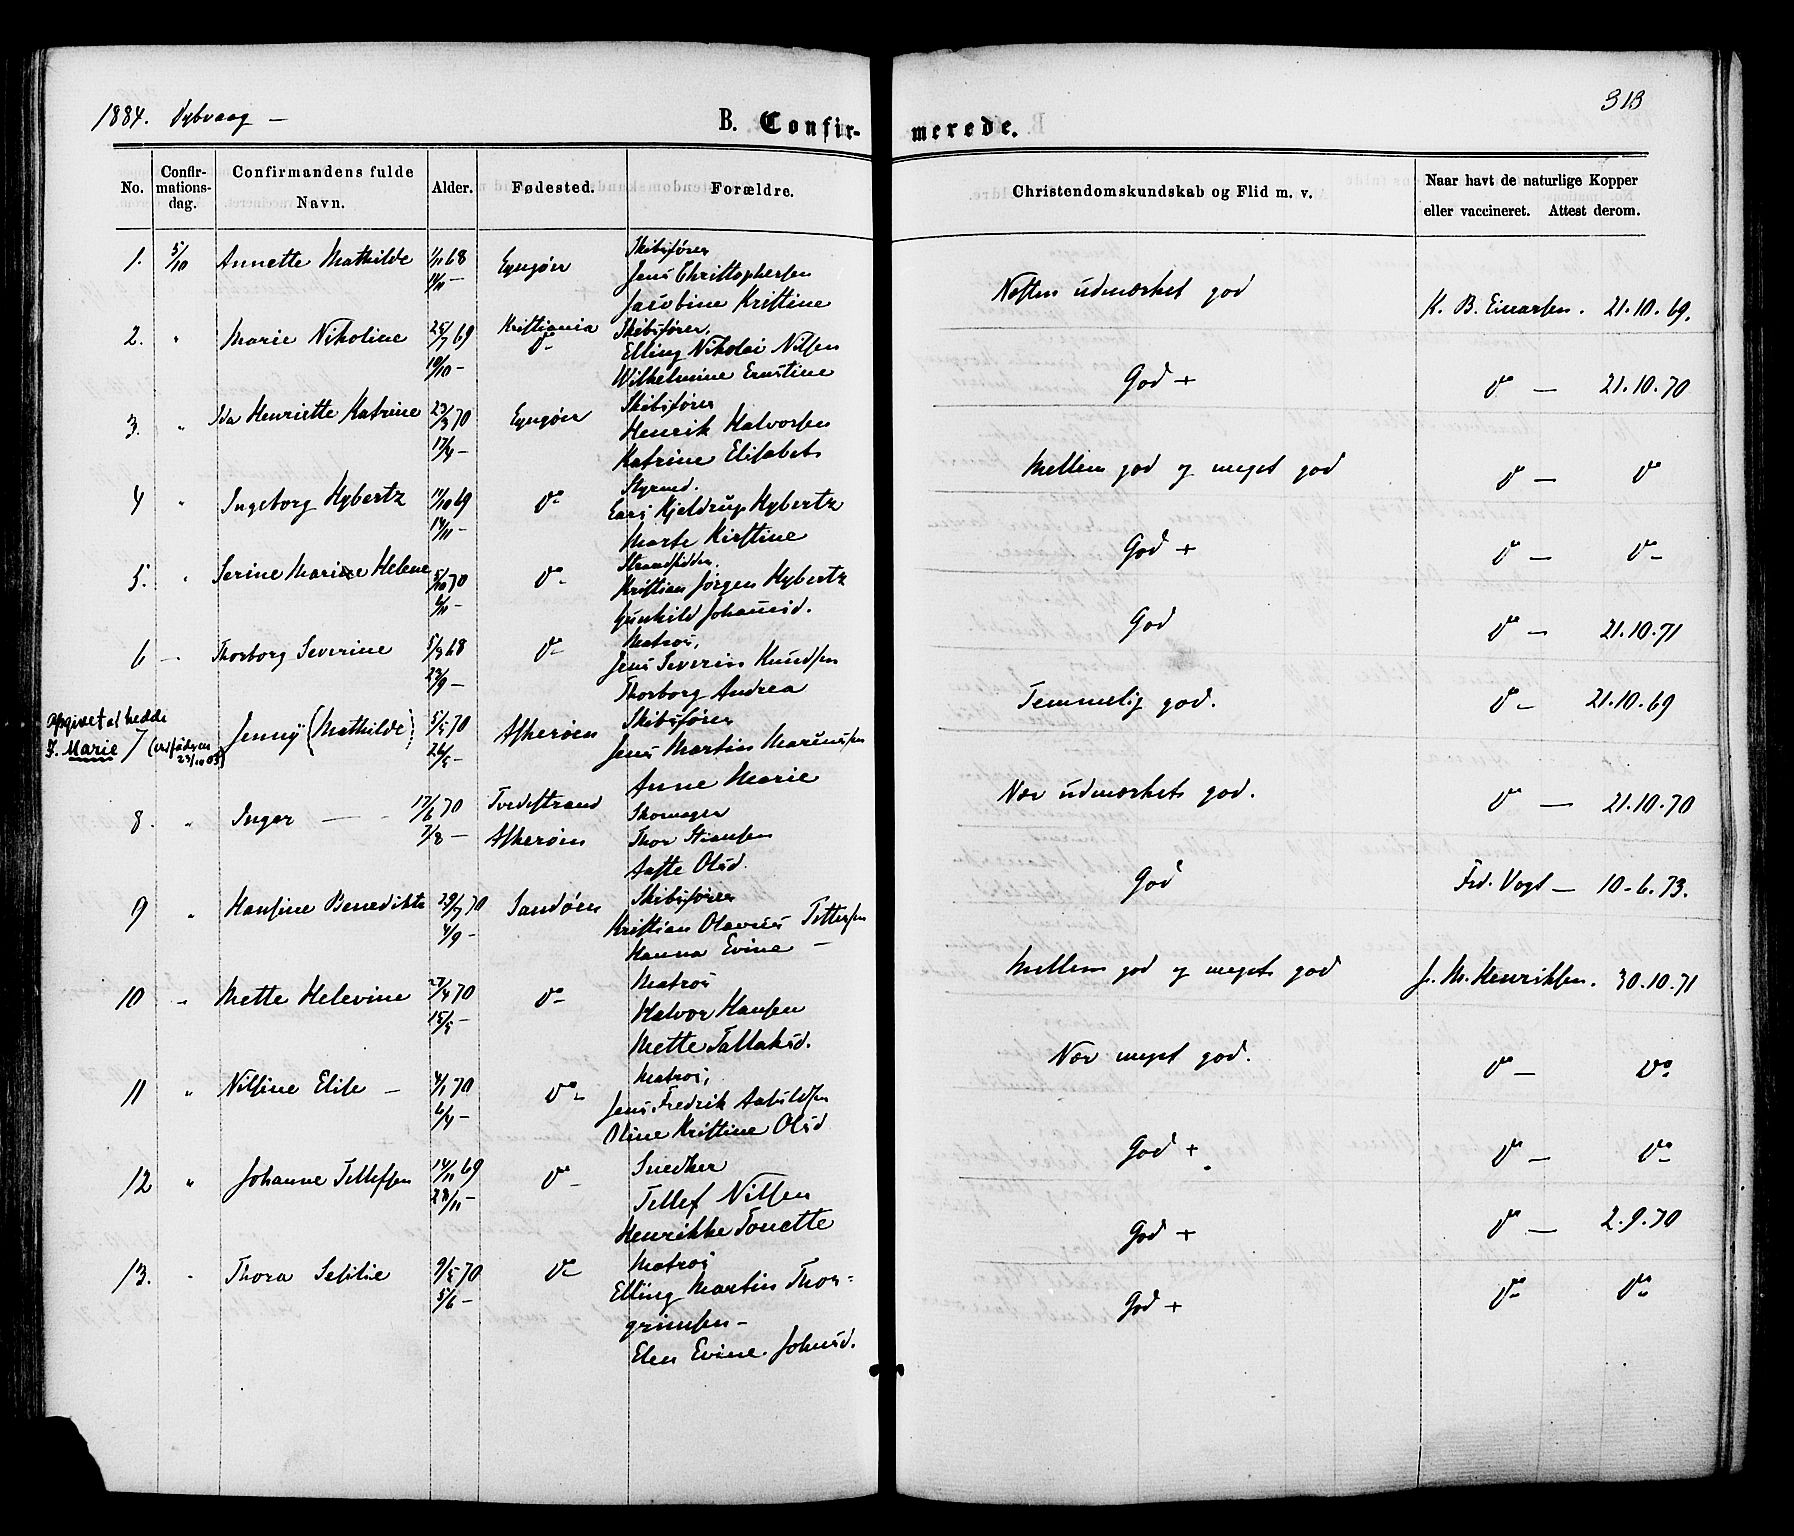 1884. Dybvaag –
B. Confir-
merede.
313
No.
Confir-
mations-
dag.
Confirmandens fulde
Navn.
Alder.
Fødested.
Forældre.
Christendomskundskab og Flid m. v.
Naar havt de naturlige Kopper
eller vaccineret. Attest derom.
1. 5/10 Annette Mathilde 1/11 68 Lyngøer Skibsfører
Jens Christophersen
Jacobine Kristine
Næsten udmærket god K. B. Einarsen. 21.10.69.
2. " Marie Nikoline 25/7 69 Kristiania Skibsfører,
19/10 – Do Elling Nikolai Nilsen
Wilhelmine Ernstine
God + Do — 21.10.70
3. " Ida Henriette Katrine 23/3 70 Lyngøer Skibsfører
17/4 Henrik Halvorsen
Katrine Elisabet
Mellem god og meget god Do — Do
4 " Ingeborg Hybertz 17/10 69 Do Styrmd.
14/11 – Lars Kjeldrup Hybertz
Marte Kirstine
God + Do — Do –
5. " Serine Marie Helene 5/10 70 Do – Strandsidder,
6/11 – Kristian Jørgen Hybertz
Gunhild Johannesd.
God Do — 21.10.71
6 – Thorborg Severine 5/8 68 Do – Matros,
23/9 – Jens Severin Knudsen
Thorborg Andrea
Temmelig god. Do – 21.10.69
opgivet at hedde
J. Marie 7 (ved fødselen
23/10 03)
Jenny (Mathilde) 5/5 70 Askerøen Skibsfører
26/5 – Jens Martin Mareniussen
Anne Marie
Nær udmærket god. Do — 21.10.70
8. " Inger — 17/6 70 Tvedestrand Skomager
7/8 – Askerøen Thor Stiansen
Aaste Olsd.
God Frd. Vogt — 10-6.73.
9 " Hansine Benedikte 29/7 70 Sandøen Skibsfører
4/9 – Kristian Olavus Tellefsen
Hanna Evine –
Mellem god og meget god J. M. Henriksen. 30.10.71
10 " Mette Helevine 27/4 70 Do – Matros
15/5 – Halvor Hansen
Mette Tallaksd.
Nær meget god. Do — Do
11 " Nilsine Elise – 4/1 70 Do – Matros,
6/4 – Jens Fredrik Aanuldsen
Oline Kristine Olsd
God + Do — Do –
12 " Johanne Tellefsen 14/11 69 Do – Snedker
28/11 – Tellef Nilsen
Henrikke Tonette
God + Do — 2.9.70
13. " Thora Sesilie 9/5 70 Do – Matros
5/6 – Elling Martin Thor-
grimsen –
Elen Evine. Johnsd.
God + Do – Do –